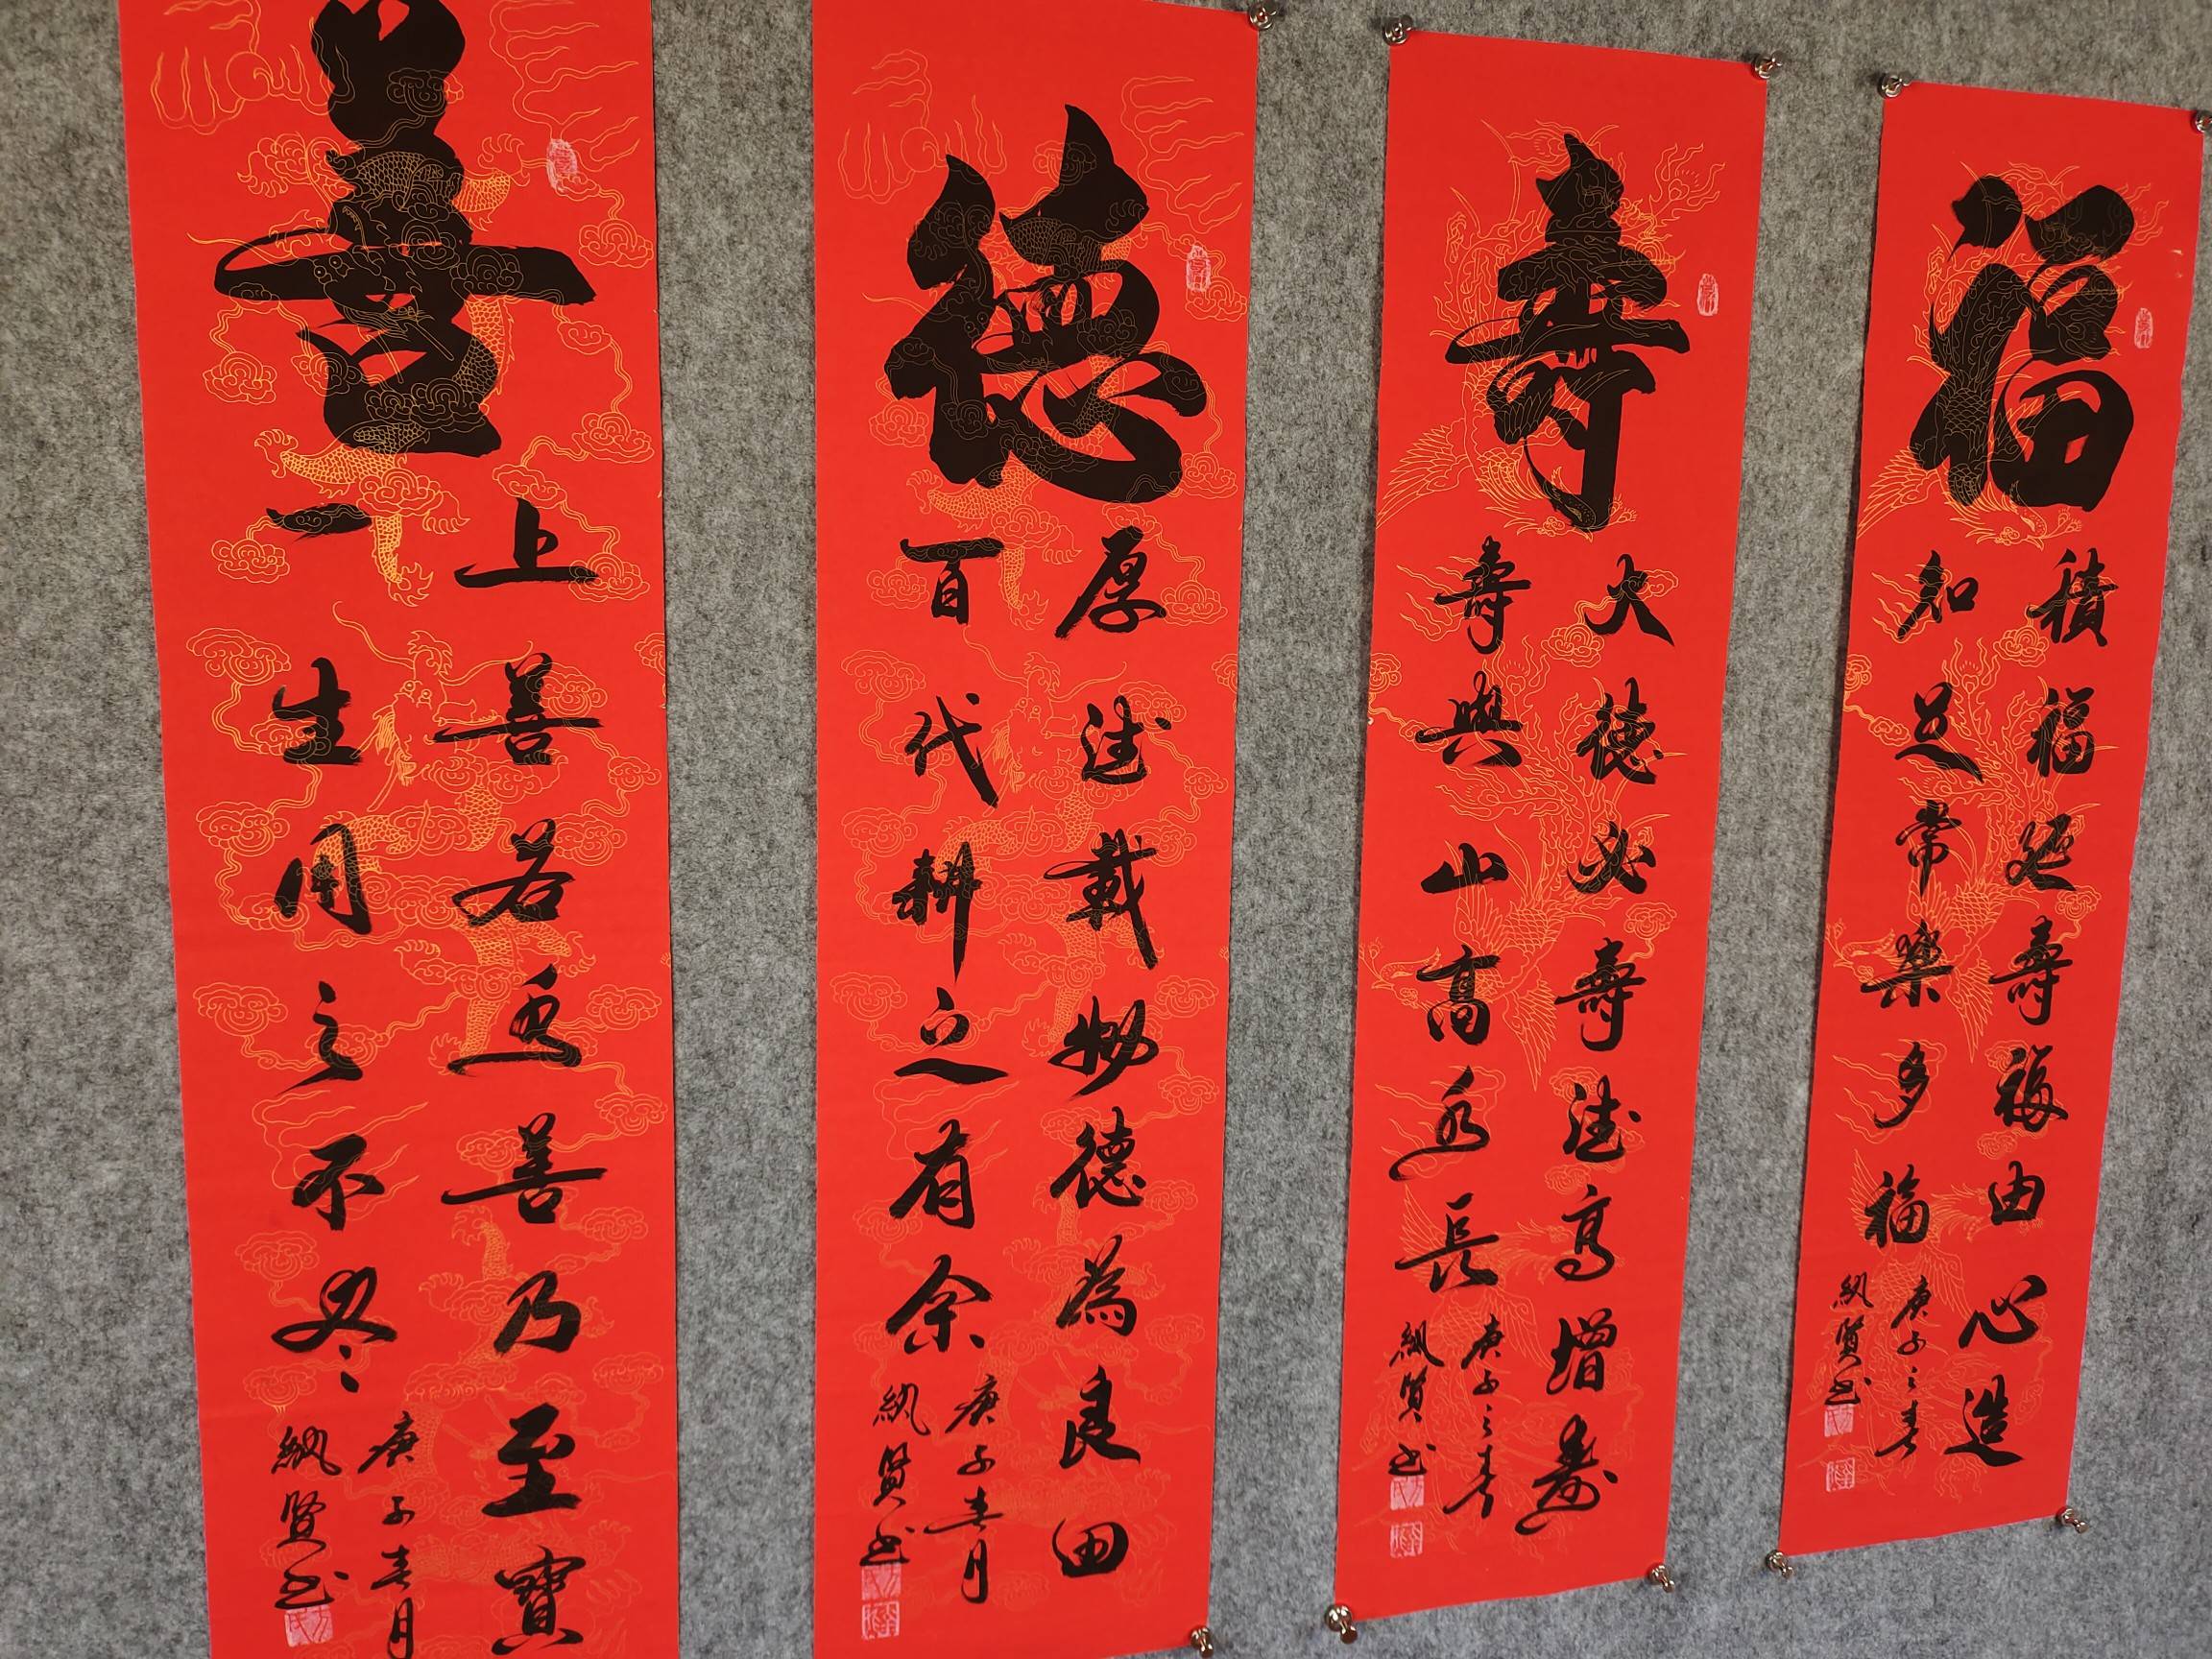 福
積福延壽福由心造
知足常樂多福
庚子之春
賢书
壽
大德必壽德高增壽
壽與山高水長
庚子之春
賢书
德
厚德載物德為良田
百代耕之有余
庚子春月
賢书
善
上善若水善乃至寶
一生用之不尽
庚子春月
賢书